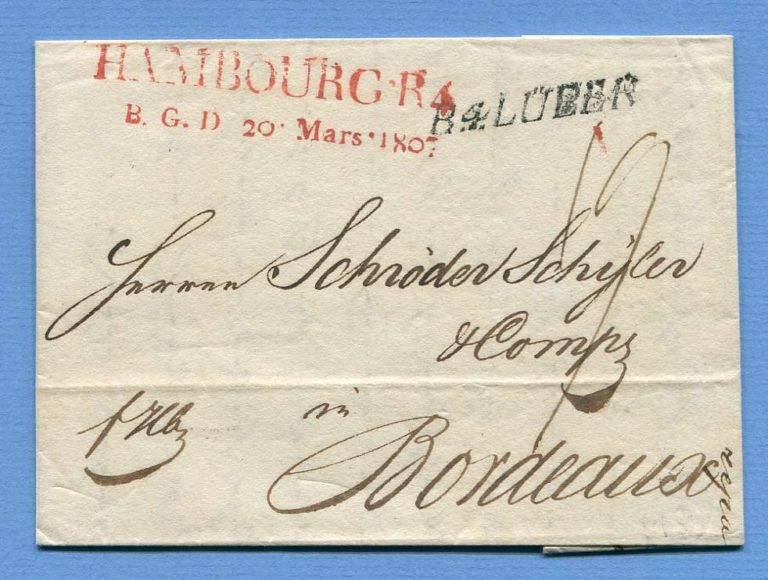 HAMBOURG·R4
B. G. D 20· Mars·1807
R.4.LÜBER
Herren Schröder Schÿler
& Comp
in
Bordeaux